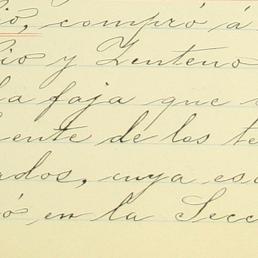 ió, compró á
Rio y Zenteno
la faja que
ente de los te
ados, cuya es
ó en la Secc